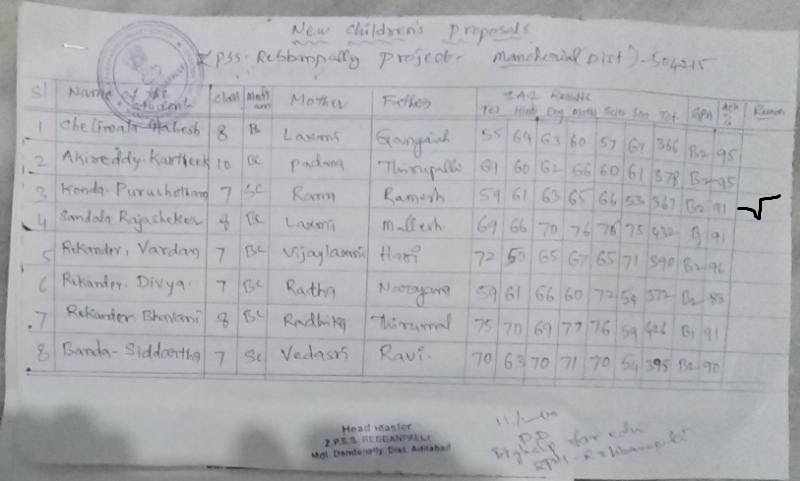 New Children's Proposals
ZPSS. Rebbanpally Project. Mancherial Dist)-504215
Sl Name of the student Class Mother Father SA2 Results
Tel Hindi Eng Math Scie Soc Tot GPA %
1 Chelimala Mahesh 8 BC Laxmi Gangaiah 55 64 63 60 57 67 366 B2 95
2 Akireddy. Kartheek 10 BC Padma Thirupathi 69 60 62 66 60 61 378 B2 95
3 Konda. Purushotham 7 SC Rama Ramesh 59 61 63 65 66 53 367 B2 91
4 Sandala Rajashekar 8 BC Laxmi Mallesh 69 66 70 76 76 75 432 B1 91
5 Rekander, Vardan 7 BC Vijaylaxmi Hari 72 50 65 67 65 71 390 B2 96
6 Rekander. Divya. 7 BC Radha Narayana 59 61 66 60 72 54 372 B2 88
7 Rekander. Bhavani 8 BC Radhika Thirumal 75 70 69 77 76 59 426 B1 91
8 Banda-Siddartha 7 SC Vedasri Ravi. 70 63 70 71 70 54 395 B2 90
Head Master
Z.P.S.S. REBBANPALLI
Mdl. Dandepally, Dist. Adilabad
P.D
Bighelp for edu